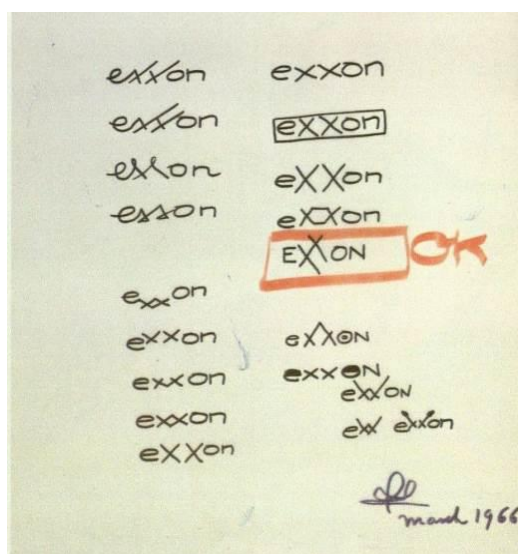 exxon
exxon
exxon
exxon
exxon
exxon
exxon
exxon
exxon
exxon
exxon
exxon
exxon
EXXON
OK
exxON
exxON
exxON
exx exxon
march 1966